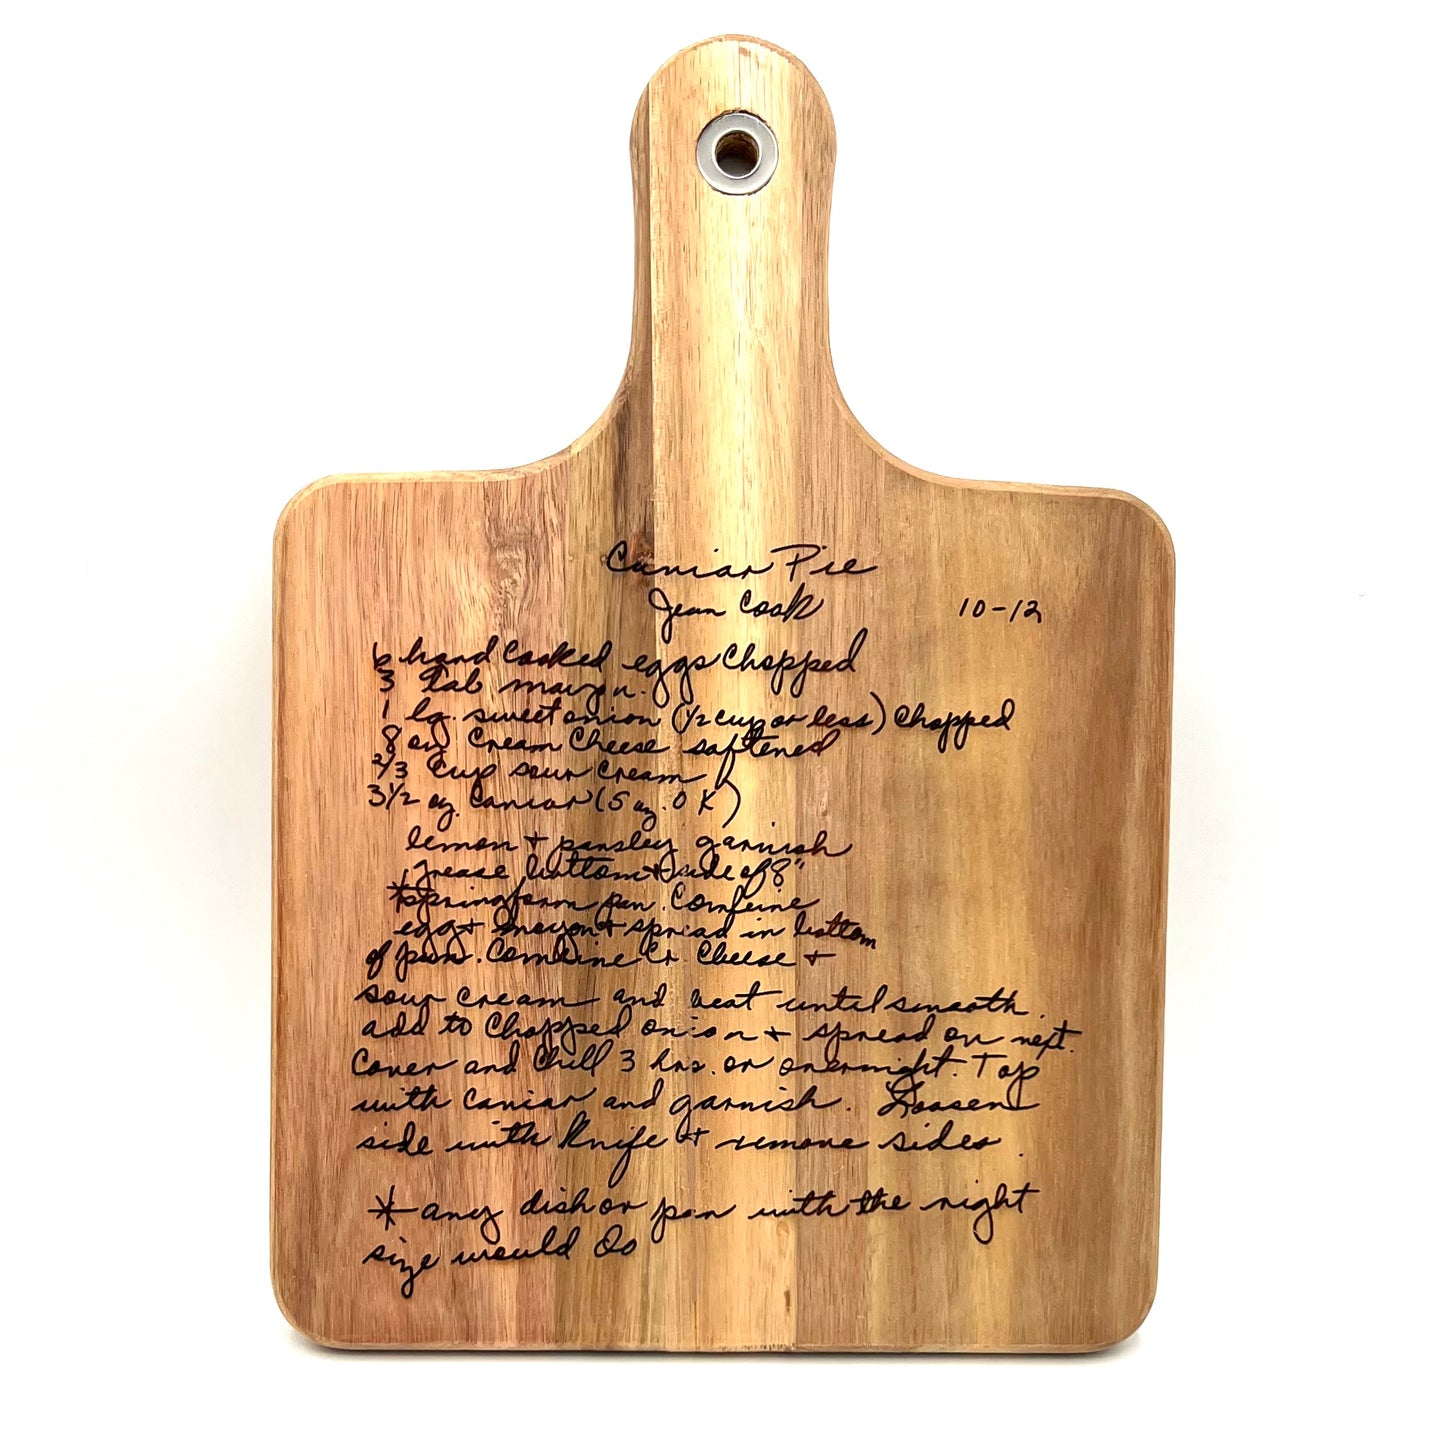 Caviar Pie
Jean Cook 10-12
6 hard Cooked eggs Chopped
3 tab mayon.
1 lg. sweet onion (1/2 cup or less) Chopped
8 oz Cream Cheese softened
2/3 Cup sour Cream
3 1/2 oz. Caviar (5 oz. OK)
lemon + parsley garnish
grease bottom + side of 8"
*springform pan. Combine
egg + mayon + spread in bottom
of pan. Combine Cr. Cheese +
sour cream and beat until smooth.
add to Chopped onion + spread on next.
Cover and Chill 3 hrs. or overnight. Top
with Caviar and garnish. Loosen
side with knife + remove sides.
* any dish or pan with the right
size would do